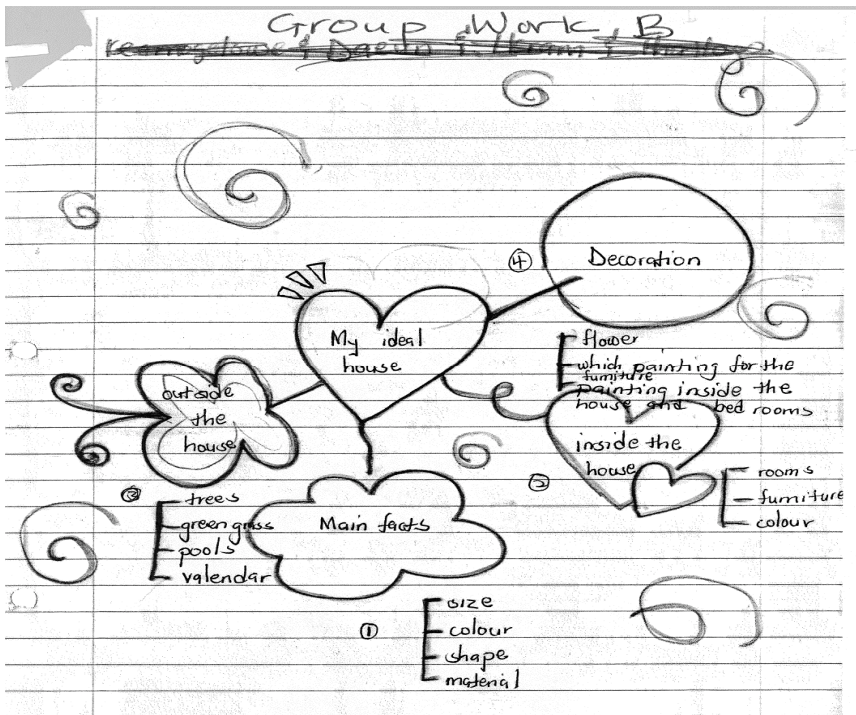 Group Work B
④
Decoration
My ideal
house
flower
which painting for the
furniture
painting inside the
house and bed rooms
outside
the
house
inside the
house
②
rooms
furniture
colour
③
trees
green grass
pools
valendar
Main facts
①
size
colour
shape
material